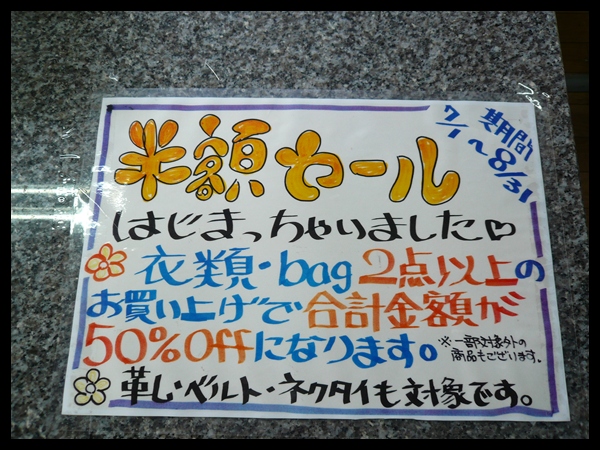 期間
7/1～8/31
半額セール
はじまっちゃいました♡
衣類・bag 2点以上の
お買い上げで合計金額が
50%Offになります。
※一部対象外の
商品もございます。
革し・ベルト・ネクタイも対象です。